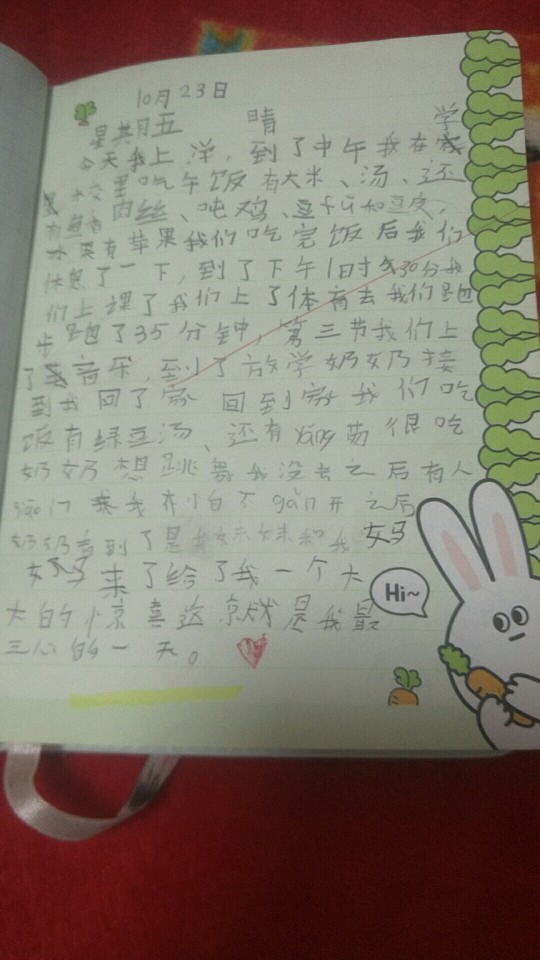 10月23日
星共月五 晴
今天我上学,到了中午我在
校里吃午饭有大米、汤、还
有鱼香肉丝、吨鸡、豆fǔ和豆皮,
水果有苹果我们吃完饭后我们
休息了一下,到了下午1日寸30分我
们上课了我们上了体育去我们跑
步跑了35分钟,第三节我们上
了音乐,到了放学奶奶接
到我回了家 回到家我们吃
饭有绿豆汤、还有 很吃
奶奶想跳舞我没去之后有人
门 我 不gǎn开之后
奶奶看到了是我妹妹和我妈
妈来了给了我一个大
大的惊喜这就是我最
心的一天。
Hi~